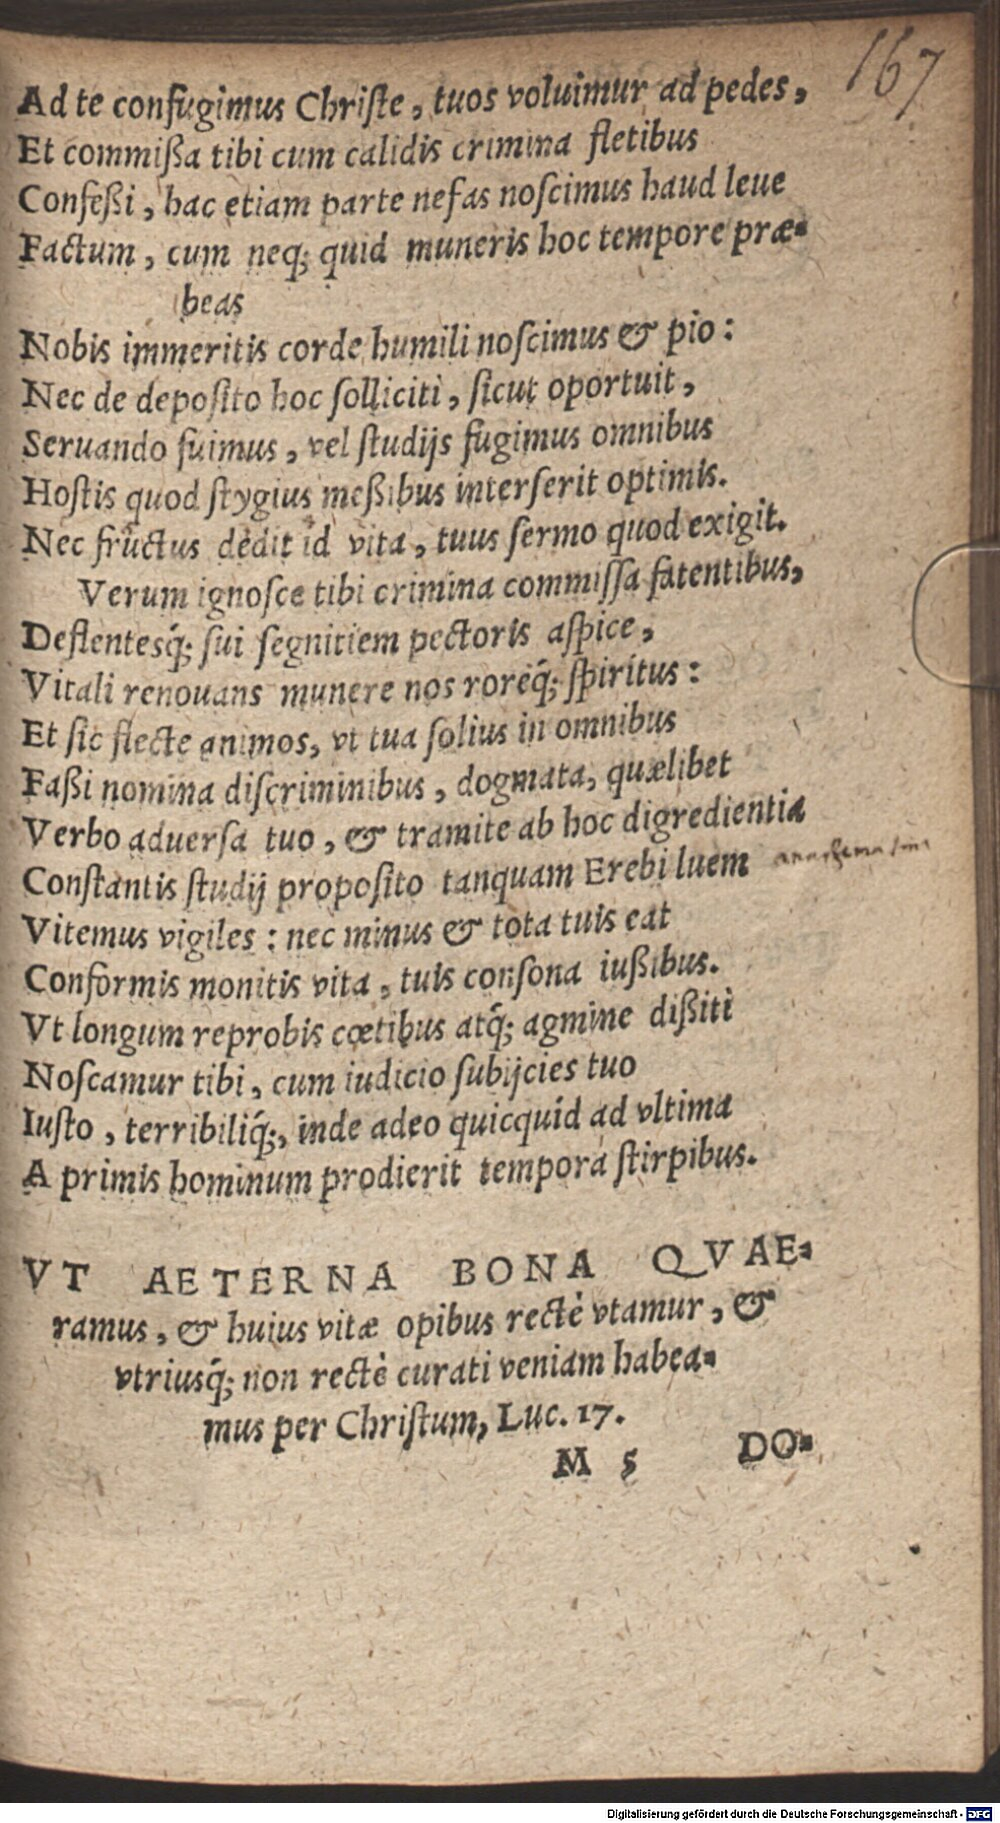 167
Ad te confugimus Chriſte, tuos voluimur ad pedes,
Et commißa tibi cum calidis crimina fletibus
Confeßi, hac etiam parte nefas noſcimus haud leue
Factum, cum neq; quid muneris hoc tempore præ-
beas
Nobis immeritis corde humili noſcimus & pio:
Nec de depoſito hoc ſolliciti, ſicut oportuit,
Seruando fuimus, vel ſtudijs fugimus omnibus
Hoſtis quod ſtygius meßibus interſerit optimis.
Nec fructus dedit id vita, tuus ſermo quod exigit.
Verum ignoſce tibi crimina commiſſa fatentibus,
Deflentesq́; ſui ſegnitiem pectoris aſpice,
Vitali renouans munere nos rorėq́; ſpiritus:
Et ſic flecte animos, vt tua ſolius in omnibus
Faßi nomina diſcriminibus, dogmata, quælibet
Verbo aduerſa tuo, & tramite ab hoc digredientia
Conſtantis ſtudij propoſito tanquam Erebi luem
Vitemus vigiles: nec minus & tota tuis eat
Conformis monitis vita, tuis conſona iußibus.
Vt longum reprobis cœtibus atq́; agmine dißiti
Noſcamur tibi, cum iudicio ſubijcies tuo
Iuſto, terribiliq́;, inde adeo quicquid ad vltima
A primis hominum prodierit tempora ſtirpibus.
VT AETERNA BONA QVAE-
ramus, & huius vitæ opibus rectè vtamur, &
vtriusq́; non rectè curati veniam habea-
mus per Chriſtum, Luc. 17.
M 5 DO-
Digitalisierung gefördert durch die Deutsche Forschungsgemeinschaft - DFG